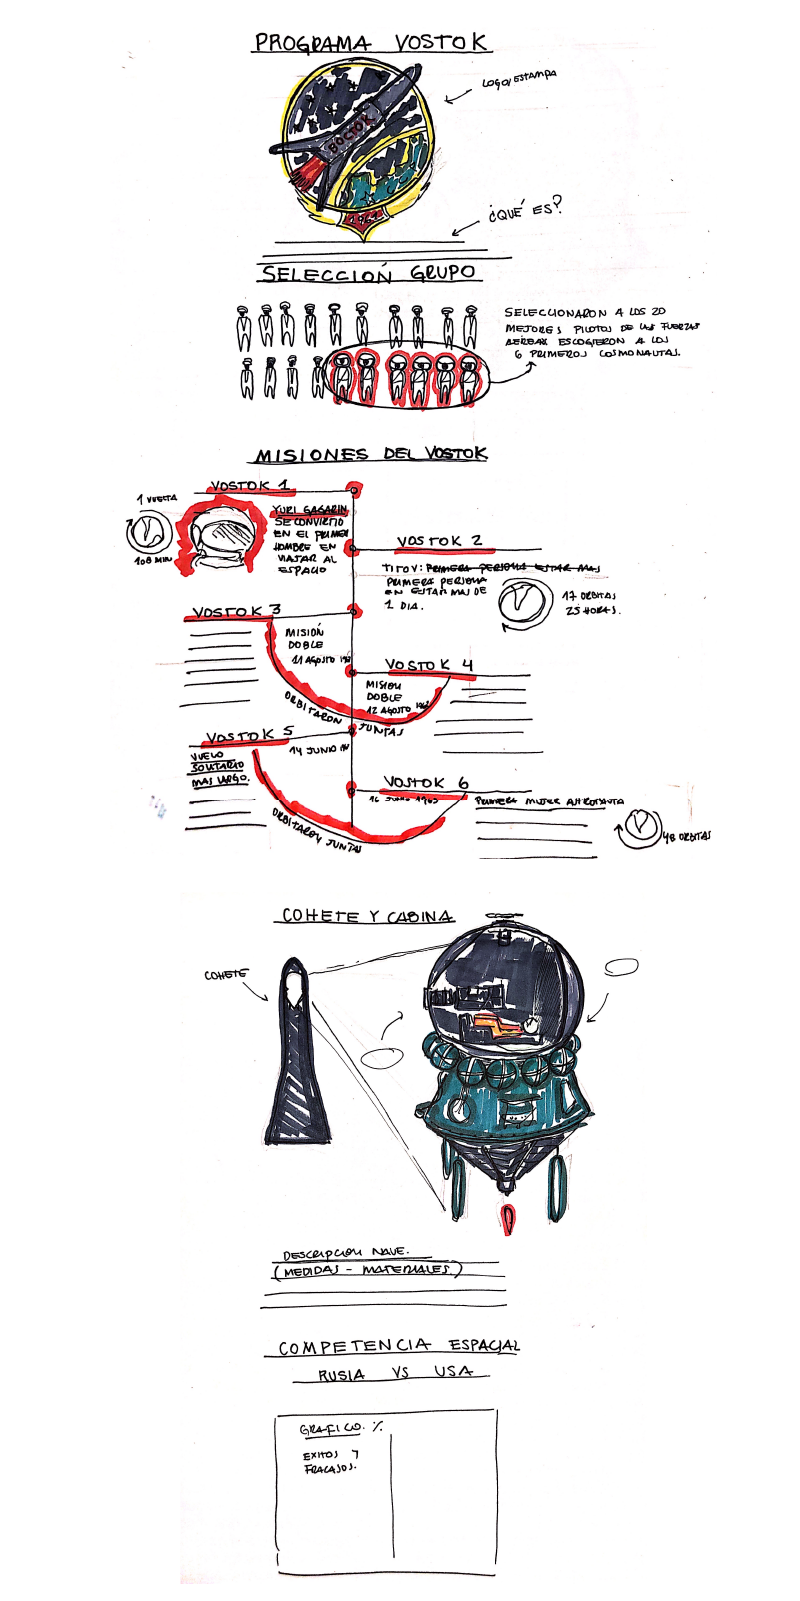 PROGRAMA VOSTOK
LOGO/ESTAMPA
BOCTOK
1961
¿QUÉ ES?
SELECCIÓN GRUPO
SELECCIONARON A LOS 20
MEJORES PILOTOS DE LAS FUERZAS
AEREAS ESCOGIERON A LOS
6 PRIMEROS COSMONAUTAS.
MISIONES DEL VOSTOK
VOSTOK 1
1 VUELTA
108 MIN
YURI GAGARIN
SE CONVIRTIO
EN EL PRIMER
HOMBRE EN
VIAJAR AL
ESPACIO
VOSTOK 2
TITOV: PRIMERA PERSONA ESTAR MAS
PRIMERA PERSONA
EN ESTAR MAS DE
1 DIA.
17 ORBITAS
25 HORAS.
VOSTOK 3
MISIÓN
DOBLE
11 AGOSTO
VOSTOK 4
MISION
DOBLE
12 AGOSTO
ORBITARON JUNTAS
VOSTOK 5
14 JUNIO
VUELO
SOLITARIO
MAS LARGO.
VOSTOK 6
16 JUNIO 1963
PRIMERA MUJER ASTRONAUTA
48 ORBITAS
ORBITARON JUNTAS
COHETE Y CABINA
COHETE
DESCRIPCION NAVE.
(MEDIDAS - MATERIALES)
COMPETENCIA ESPACIAL
RUSIA VS USA
GRAFICO. %
EXITOS Y
FRACASOS.